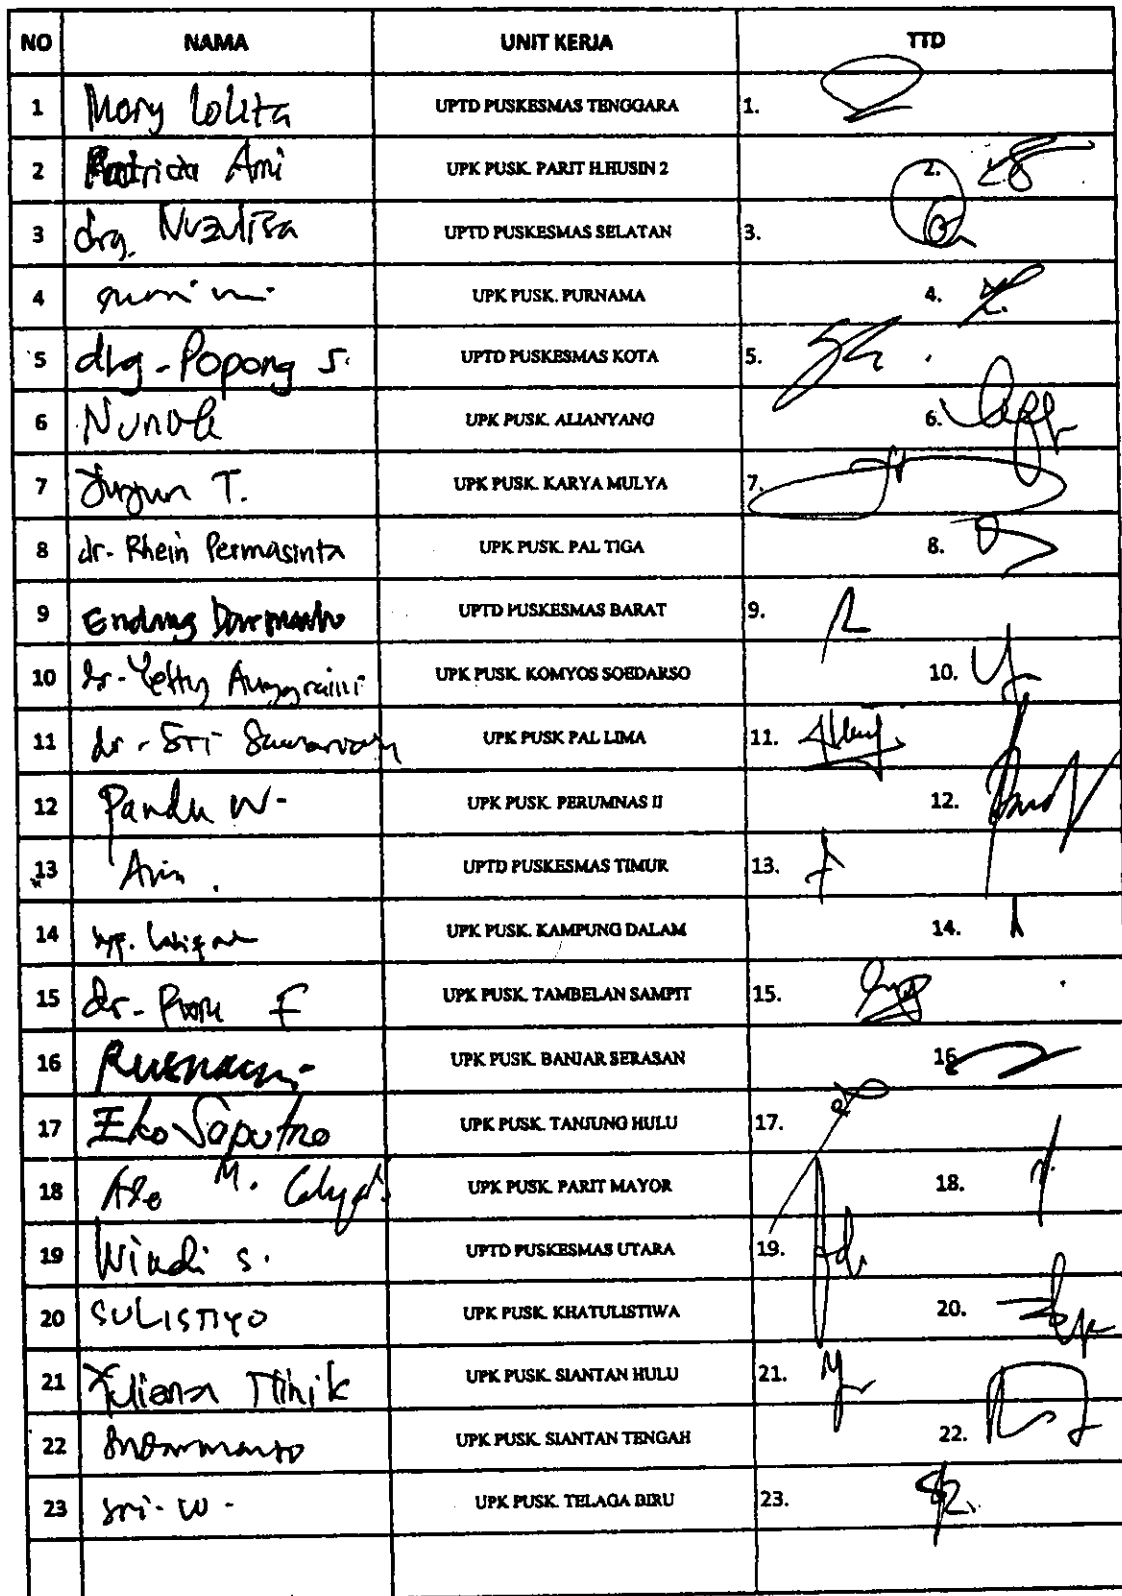 NO NAMA UNIT KERJA TTD
1 Mary Lolita UPTD PUSKESMAS TENGGARA 1.
2 Patricia Ami UPK PUSK. PARIT H.HUSIN 2 2.
3 drg. Nuzulisa UPTD PUSKESMAS SELATAN 3.
4 UPK PUSK. PURNAMA 4.
5 drg - Popong S. UPTD PUSKESMAS KOTA 5.
6 UPK PUSK. ALIANYANG 6.
7 Jurjun T. UPK PUSK. KARYA MULYA 7.
8 dr. Rhein Permasinta UPK PUSK. PAL TIGA 8.
9 Endang Darmanto UPTD PUSKESMAS BARAT 9.
10 dr. Yetty Anggraini UPK PUSK. KOMYOS SOEDARSO 10.
11 dr. Sri UPK PUSK PAL LIMA 11.
12 Pandu W - UPK PUSK. PERUMNAS II 12.
13 UPTD PUSKESMAS TIMUR 13.
14 UPK PUSK. KAMPUNG DALAM 14.
15 dr. F UPK PUSK. TAMBELAN SAMPIT 15.
16 UPK PUSK. BANJAR SERASAN 16
17 Eko Saputro UPK PUSK. TANJUNG HULU 17.
18 M. UPK PUSK. PARIT MAYOR 18.
19 Windi S. UPTD PUSKESMAS UTARA 19.
20 SULISTIYO UPK PUSK. KHATULISTIWA 20.
21 Yuliana Titik UPK PUSK. SIANTAN HULU 21.
22 UPK PUSK. SIANTAN TENGAH 22.
23 Sri - W - UPK PUSK. TELAGA BIRU 23.